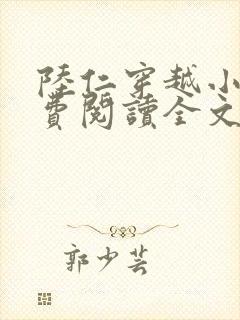 陸仁穿越小
費閱讀全文
郭少芸